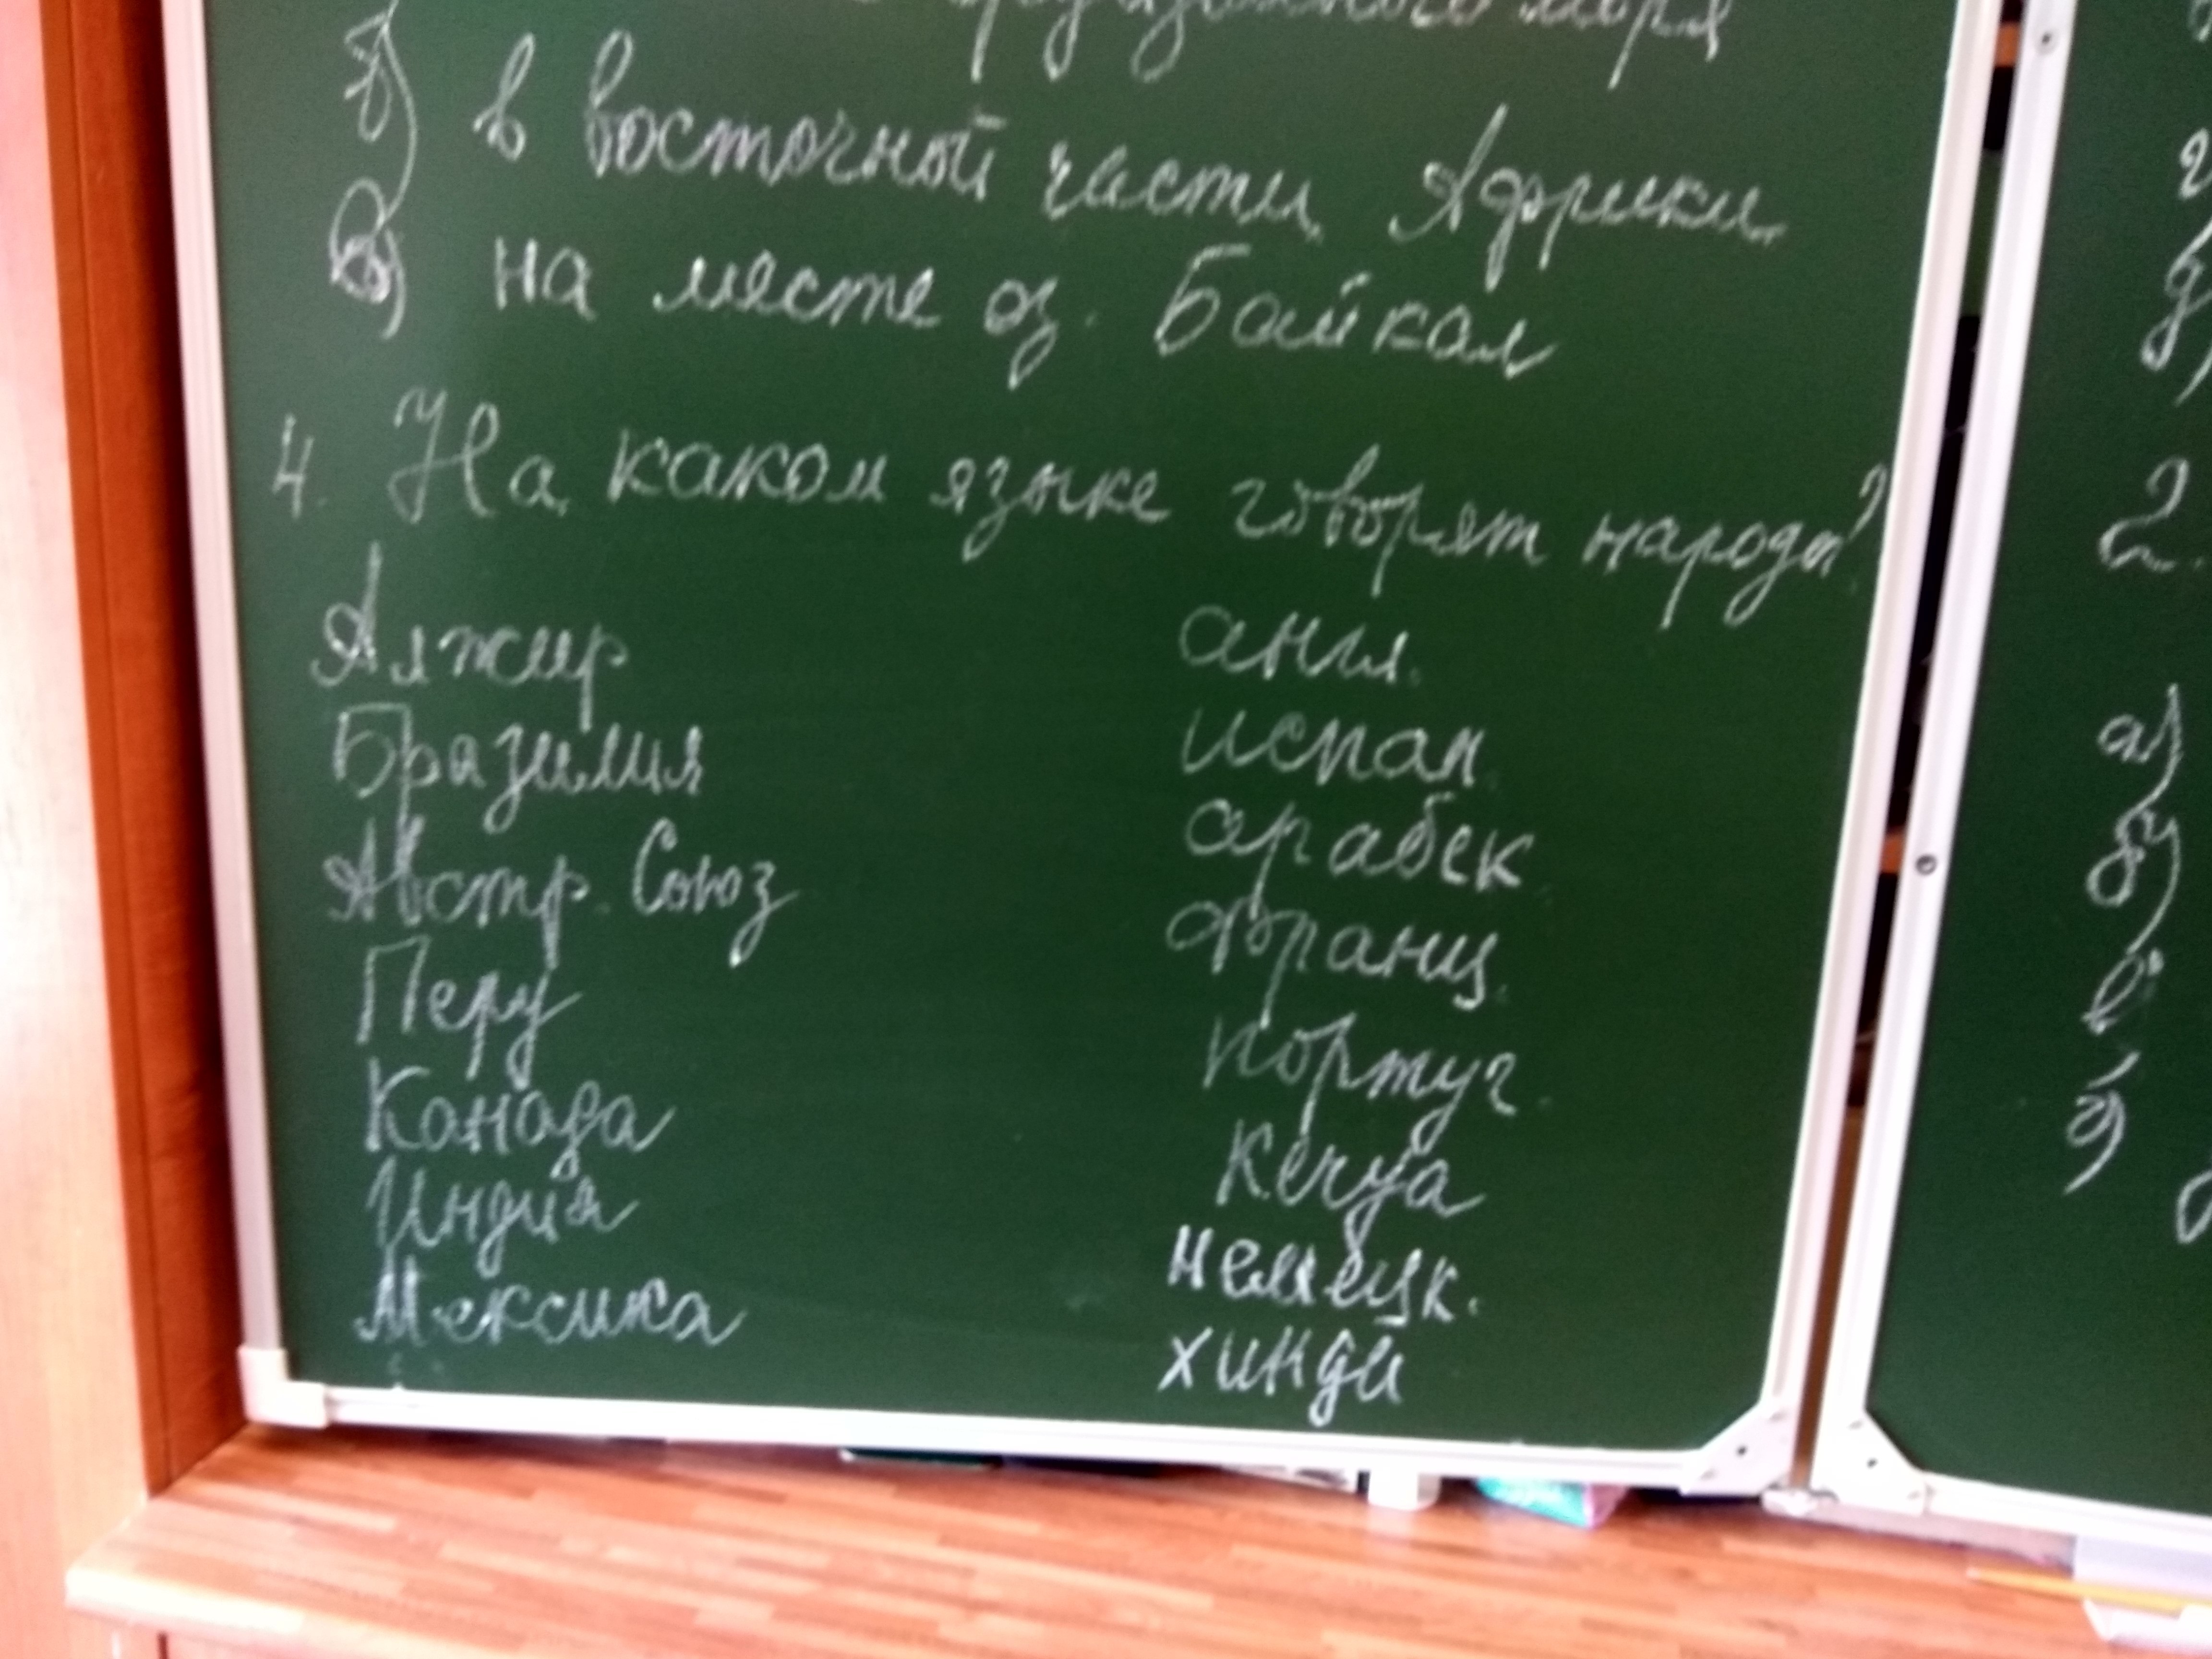 моря
б) в восточной части Африки
в) на месте оз. Байкал
4. На каком языке говорят народы?
Алжир англ.
Бразилия испан.
Австр. Союз арабск
Перу франц.
Канада португ.
Индия Кечуа
Мексика немецк.
хинди
2.
а)
б)
в